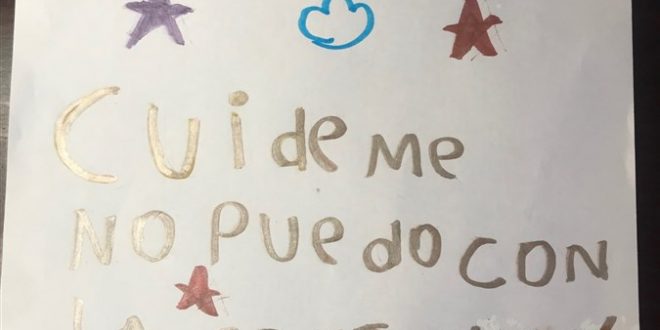 Cuideme
No Puedo CON
LA